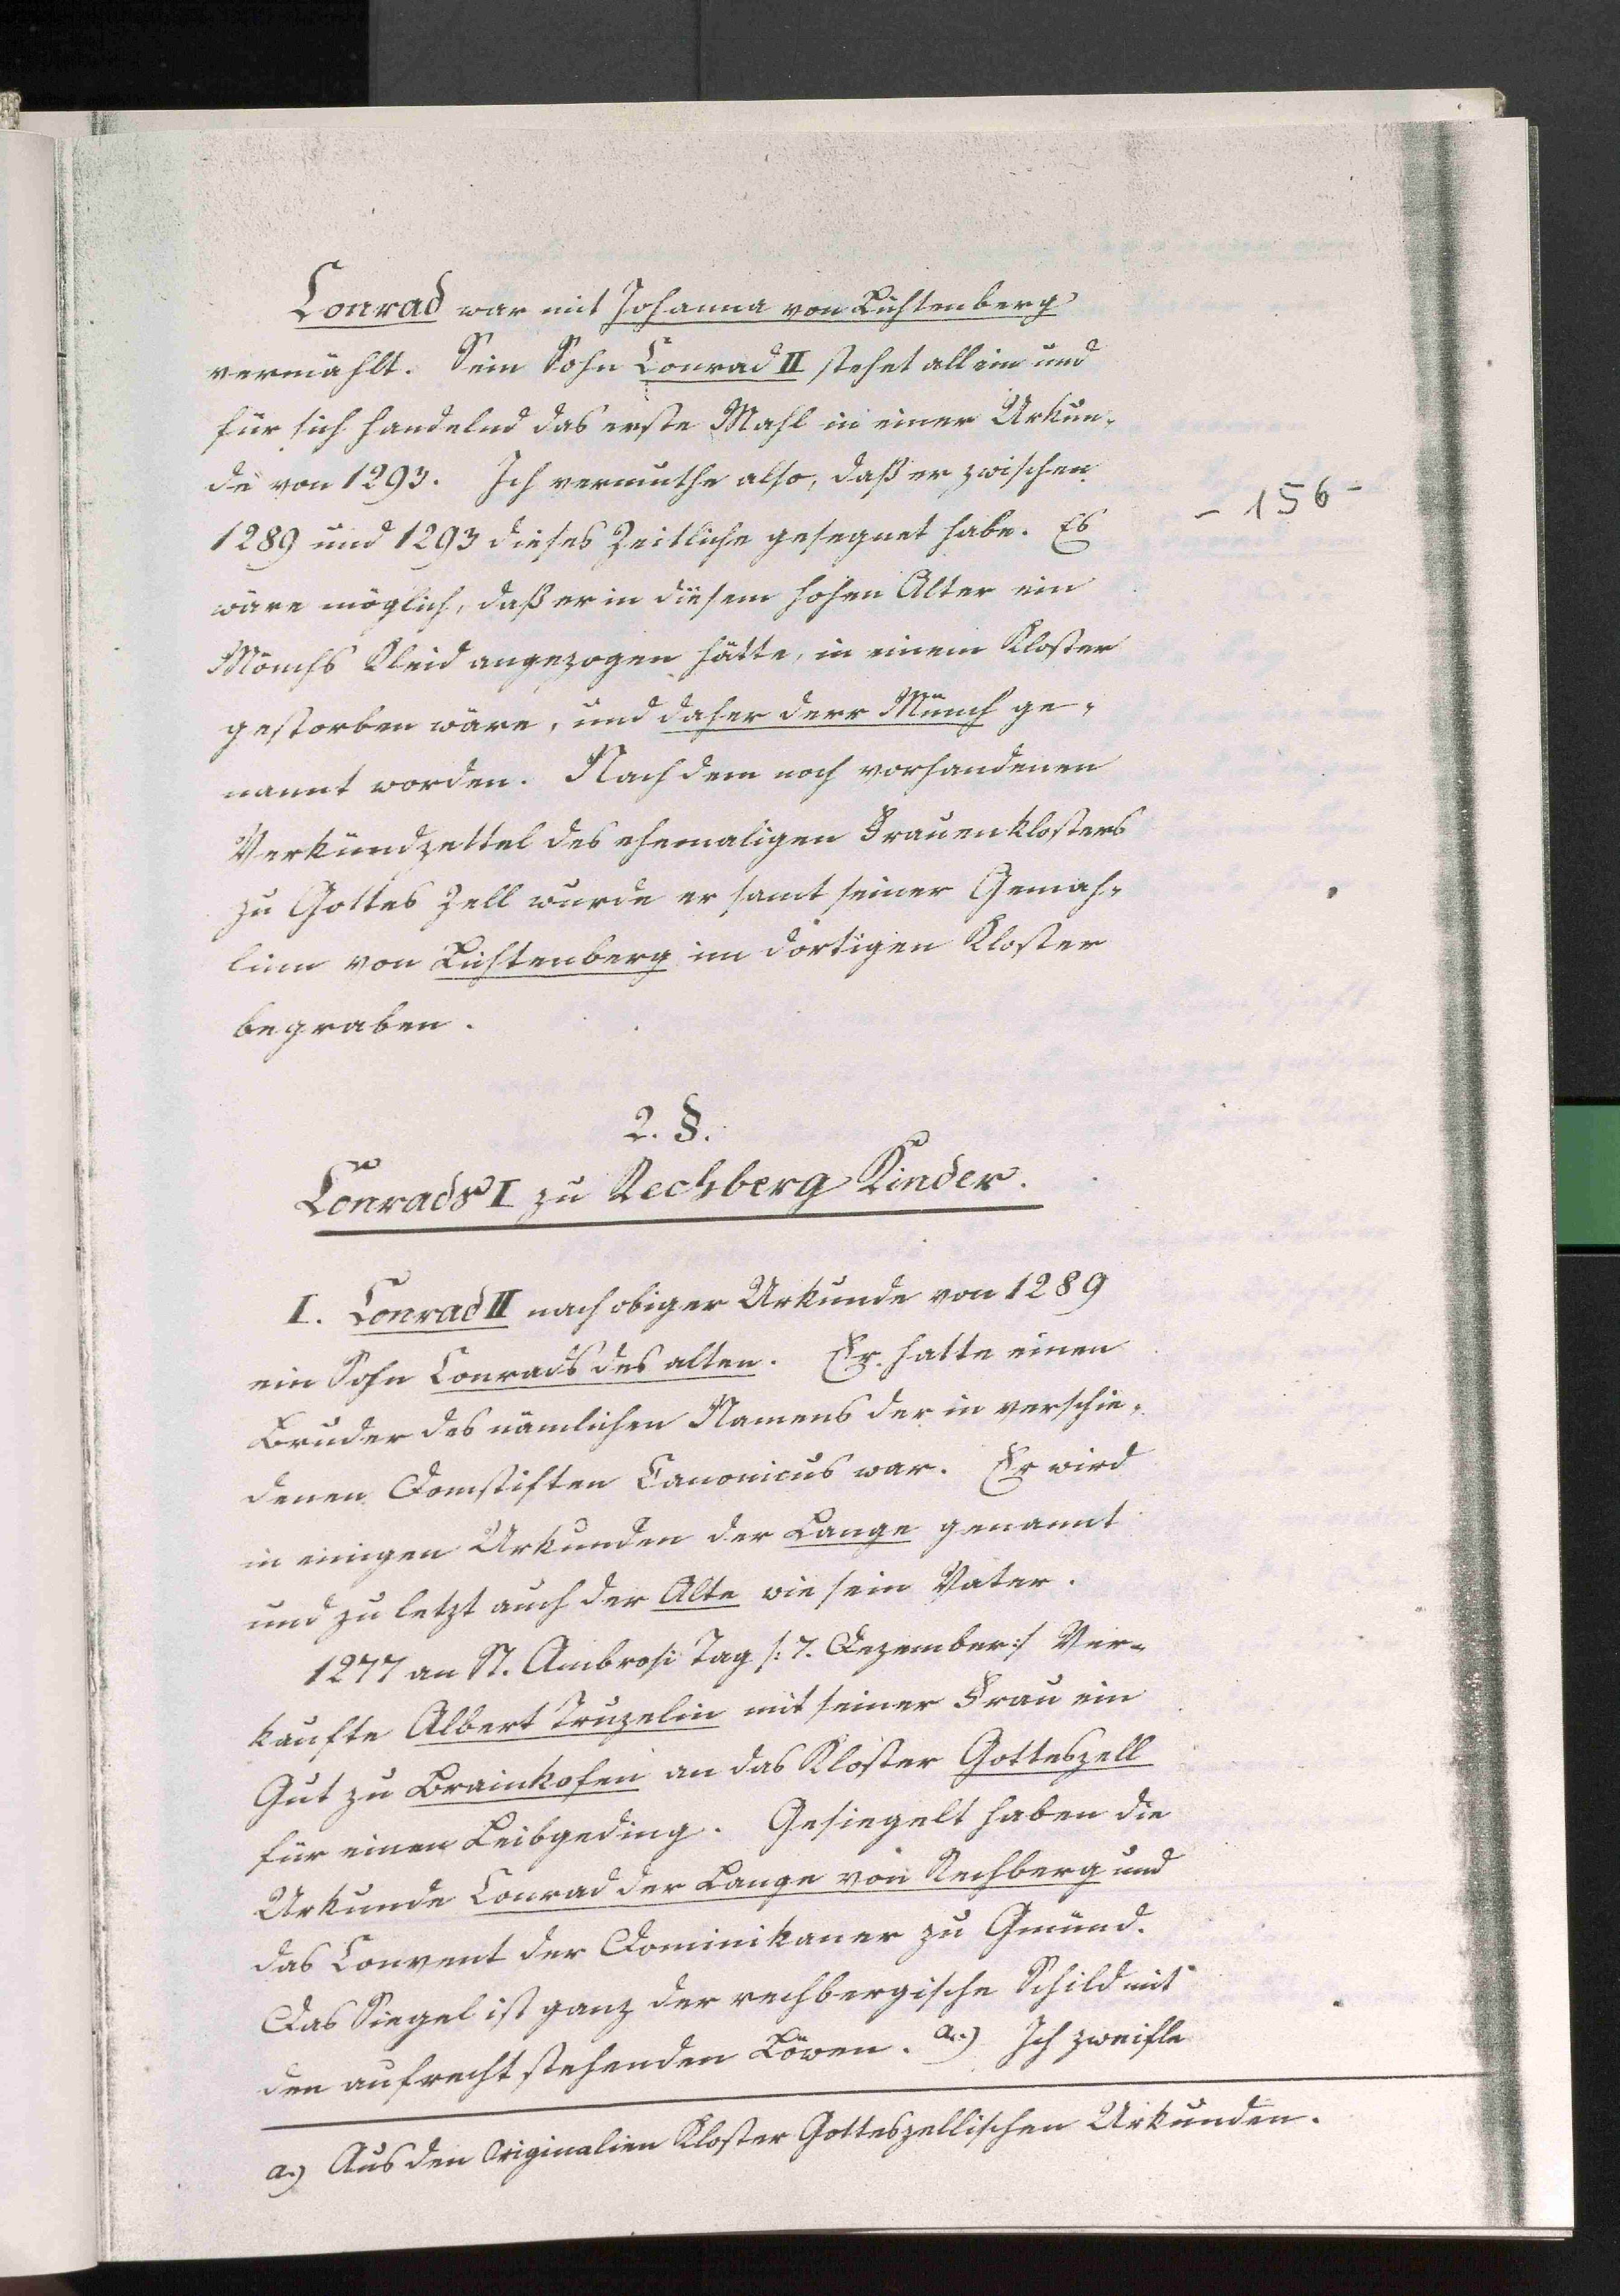 Conrad war mit Johanna von Lichtenberg
vermählt. Sein Sohn Conrad II stehet allein und
für sich handelnd das erste Mahl in einer Urkun-
de von 1293. Ich vermuthe also, daß er zwischen
- 156 -
1289 und 1293 dieses Zeitliche gesegnet habe. Es
wäre möglich, daß er in diesem hohen Alter ein
Mönchs Kleid angezogen hätte, in einem Kloster
gestorben wäre, und daher derr Münch ge-
nannt worden. Nach dem noch vorhandenen
Verkündzettel des ehemaligen Frauenklosters
zu Gottes Zell wurde er samt seiner Gemah-
linn von Lichtenberg im dortigen Kloster
begraben.
2. §.
Conrads I zu Rechberg Kinder.
I. Conrad II nach obiger Urkunde von 1289
ein Sohn Conrads des alten. Er hatte einen
Bruder des nämlichen Namens der in verschie-
denen Domstiften Canonicus war. Er wird
in einigen Urkunden der Lange genannt
und zu letzt auch der Alte wie sein Vater.
1277 an St. Ambrosi Tag /: 7. Dezember :/ Ver-
kaufte Albert Truzelin mit seiner Frau ein
Gut zu Brainkofen an das Kloster Gotteszell
für einen Leibgeding. Gesiegelt haben die
Urkunde Conrad der Lange von Rechberg und
das Convent der Dominikaner zu Gmünd.
Das Siegel ist ganz der rechbergische Schild mit
den aufrecht stehenden Löwen. a.) Ich zweifle
a.) Aus den Originalien Kloster Gotteszellischen Urkunden.